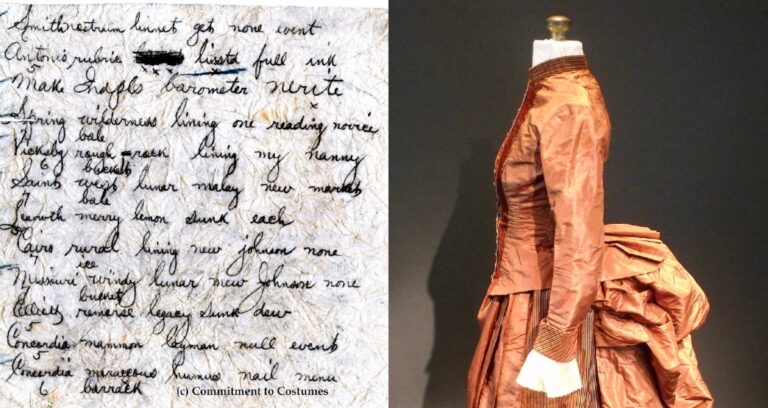 Smith nostrum linnet get none event
Antonio rubric lissta full ink
5
Make Indpls barometer nerite
Spring wilderness lining one reading novice
7 bale
Vicksby rough rack lining my nanny
6 bucket
Saints west lunar malay new
7 bale
merry lemon sunk each
Cairo rural lining new johnson none
7 ice
Missouri windy lunar new Johnson none
bucket
remorse legacy sunk dew
5
Concordia mammon layman null events
5
Concordia meraccous humus nail menu
6 barrack
(c) Commitment to Costumes